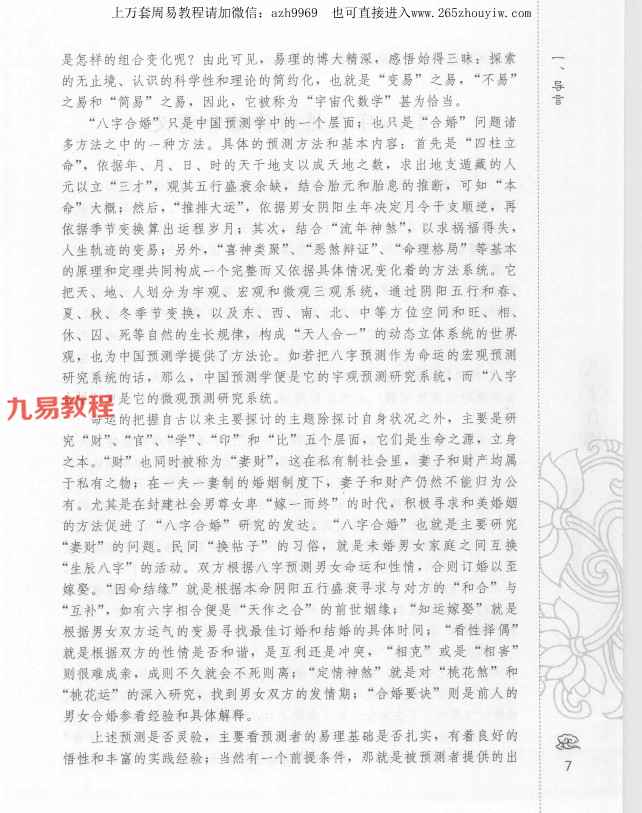 上万套周易教程请加微信：azh9969 也可直接进入www.265zhouyiw.com
是怎样的组合变化呢？由此可见，易理的博大精深，感悟始得三昧；探索
的无止境、认识的科学性和理论的简约化，也就是“变易”之易，“不易”
之易和“简易”之易，因此，它被称为“宇宙代数学”甚为恰当。
“八字合婚”只是中国预测学中的一个层面；也只是“合婚”问题诸
多方法之中的一种方法。具体的预测方法和基本内容：首先是“四柱立
命”，依据年、月、日、时的天干地支以成天地之数，求出地支遁藏的人
元以立“三才”，观其五行盛衰余缺，结合胎元和胎息的推断，可知“本
命”大概；然后，“推排大运”，依据男女阴阳生年决定月令干支顺逆，再
依据季节变换算出运程岁月；其次，结合“流年神煞”，以求祸福得失，
人生轨迹的变易；另外，“喜神类聚”、“恶煞辩证”、“命理格局”等基本
的原理和定理共同构成一个完整而又依据具体情况变化着的方法系统。它
把天、地、人划分为宇观、宏观和微观三观系统，通过阴阳五行和春、
夏、秋、冬季节变换，以及东、西、南、北、中等方位空间和旺、相、
休、囚、死等自然的生长规律，构成“天人合一”的动态立体系统的世界
观，也为中国预测学提供了方法论。如若把八字预测作为命运的宏观预测
研究系统的话，那么，中国预测学便是它的宇观预测研究系统，而“八字
是它的微观预测研究系统。
九易教程
命运的把握自古以来主要探讨的主题除探讨自身状况之外，主要是研
究“财”、“官”、“学”、“印”和“比”五个层面，它们是生命之源，立身
之本。“财”也同时被称为“妻财”，这在私有制社会里，妻子和财产均属
于私有之物；在一夫一妻制的婚姻制度下，妻子和财产仍然不能归为公
有。尤其是在封建社会男尊女卑“嫁一而终”的时代，积极寻求和美婚姻
的方法促进了“八字合婚”研究的发达。“八字合婚”也就是主要研究
“妻财”的问题。民间“换帖子”的习俗，就是未婚男女家庭之间互换
“生辰八字”的活动。双方根据八字预测男女命运和性情，合则订婚以至
嫁娶。“因命结缘”就是根据本命阴阳五行盛衰寻求与对方的“和合”与
“互补”，如有六字相合便是“天作之合”的前世姻缘；“知运嫁娶”就是
根据男女双方运气的变易寻找最佳订婚和结婚的具体时间；“看性择偶”
就是根据双方的性情是否和谐，是互利还是冲突，“相克”或是“相害”
则很难成亲，成则不久就会不死则离；“定情神煞”就是对“桃花煞”和
“桃花运”的深入研究，找到男女双方的发情期；“合婚要诀”则是前人的
男女合婚参看经验和具体解释。
上述预测是否灵验，主要看预测者的易理基础是否扎实，有着良好的
悟性和丰富的实践经验；当然有一个前提条件，那就是被预测者提供的出
一、导言
7